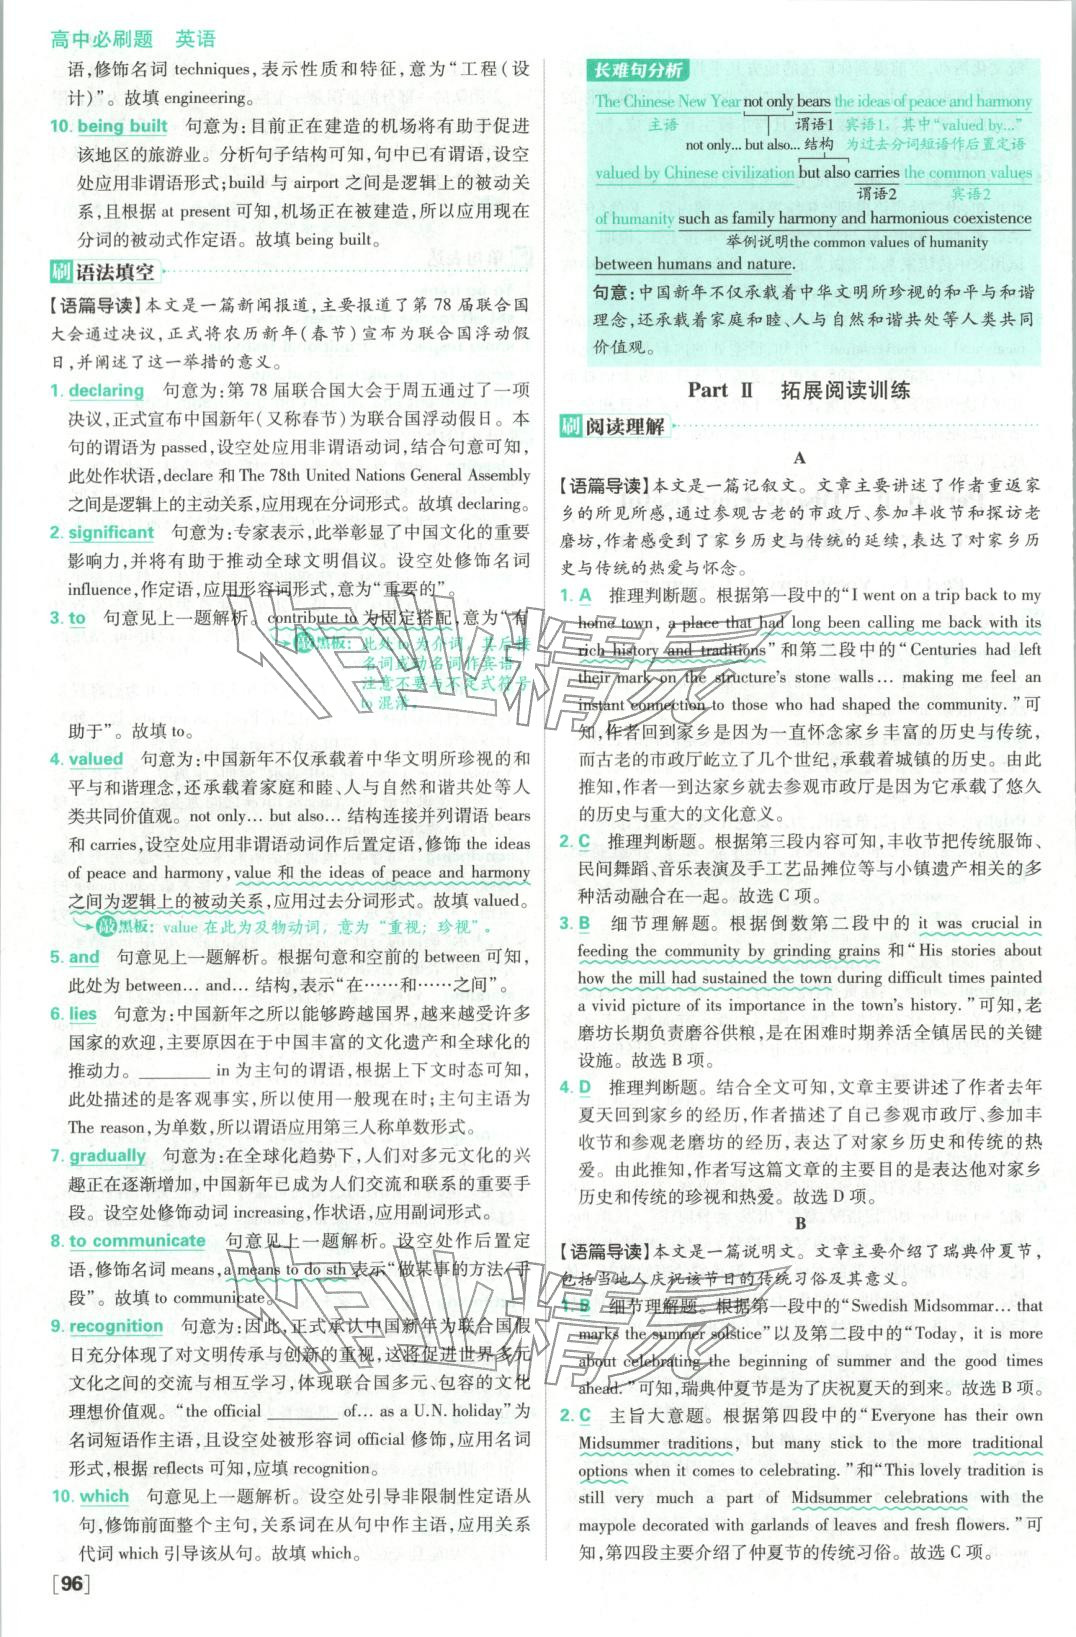 高中必刷题 英语
语,修饰名词 techniques,表示性质和特征,意为“工程(设
计)”。故填 engineering。
10. being built 句意为:目前正在建造的机场将有助于促进
该地区的旅游业。分析句子结构可知,句中已有谓语,设空
处应用非谓语形式;build 与 airport 之间是逻辑上的被动关
系,且根据 at present 可知,机场正在被建造,所以应用现在
分词的被动式作定语。故填 being built。
刷 语法填空
【语篇导读】本文是一篇新闻报道,主要报道了第 78 届联合国
大会通过决议,正式将农历新年(春节)宣布为联合国浮动假
日,并阐述了这一举措的意义。
1. declaring 句意为:第 78 届联合国大会于周五通过了一项
决议,正式宣布中国新年(又称春节)为联合国浮动假日。本
句的谓语为 passed,设空处应用非谓语动词,结合句意可知,
此处作状语,declare 和 The 78th United Nations General Assembly
之间是逻辑上的主动关系,应用现在分词形式。故填 declaring。
2. significant 句意为:专家表示,此举彰显了中国文化的重要
影响力,并将有助于推动全球文明倡议。设空处修饰名词
influence,作定语,应用形容词形式,意为“重要的”。
3. to 句意见上一题解析。contribute to 为固定搭配,意为“有
敲黑板:此处 to 为介词,其后接
名词或动名词作宾语,
注意不要与不定式符号
to 混淆。
助于”。故填 to。
4. valued 句意为:中国新年不仅承载着中华文明所珍视的和
平与和谐理念,还承载着家庭和睦、人与自然和谐共处等人
类共同价值观。not only… but also… 结构连接并列谓语 bears
和 carries,设空处应用非谓语动词作后置定语,修饰 the ideas
of peace and harmony,value 和 the ideas of peace and harmony
之间为逻辑上的被动关系,应用过去分词形式。故填 valued。
敲黑板:value 在此为及物动词,意为“重视;珍视”。
5. and 句意见上一题解析。根据句意和空前的 between 可知,
此处为 between… and… 结构,表示“在……和……之间”。
6. lies 句意为:中国新年之所以能够跨越国界,越来越受许多
国家的欢迎,主要原因在于中国丰富的文化遗产和全球化的
推动力。________ in 为主句的谓语,根据上下文时态可知,
此处描述的是客观事实,所以使用一般现在时;主句主语为
The reason,为单数,所以谓语应用第三人称单数形式。
7. gradually 句意为:在全球化趋势下,人们对多元文化的兴
趣正在逐渐增加,中国新年已成为人们交流和联系的重要手
段。设空处修饰动词 increasing,作状语,应用副词形式。
8. to communicate 句意见上一题解析。设空处作后置定
语,修饰名词 means,a means to do sth 表示“做某事的方法/手
段”。故填 to communicate。
9. recognition 句意为:因此,正式承认中国新年为联合国假
日充分体现了对文明传承与创新的重视,这将促进世界多元
文化之间的交流与相互学习,体现联合国多元、包容的文化
理想价值观。“the official ________ of… as a U.N. holiday”为
名词短语作主语,且设空处被形容词 official 修饰,应用名词
形式,根据 reflects 可知,应填 recognition。
10. which 句意见上一题解析。设空处引导非限制性定语从
句,修饰前面整个主句,关系词在从句中作主语,应用关系
代词 which 引导该从句。故填 which。
[96]
长难句分析
The Chinese New Year not only bears the ideas of peace and harmony
主语 谓语1 宾语1,其中“valued by…”
not only… but also… 结构 为过去分词短语作后置定语
valued by Chinese civilization but also carries the common values
谓语2 宾语2
of humanity such as family harmony and harmonious coexistence
举例说明the common values of humanity
between humans and nature.
句意:中国新年不仅承载着中华文明所珍视的和平与和谐
理念,还承载着家庭和睦、人与自然和谐共处等人类共同
价值观。
Part Ⅱ 拓展阅读训练
刷 阅读理解
A
【语篇导读】本文是一篇记叙文。文章主要讲述了作者重返家
乡的所见所感,通过参观古老的市政厅、参加丰收节和探访老
磨坊,作者感受到了家乡历史与传统的延续,表达了对家乡历
史与传统的热爱与怀念。
1. A 推理判断题。根据第一段中的“I went on a trip back to my
home town, a place that had long been calling me back with its
rich history and traditions”和第二段中的“Centuries had left
their mark on the structure's stone walls… making me feel an
instant connection to those who had shaped the community.”可
知,作者回到家乡是因为一直怀念家乡丰富的历史与传统,
而古老的市政厅屹立了几个世纪,承载着城镇的历史。由此
推知,作者一到达家乡就去参观市政厅是因为它承载了悠久
的历史与重大的文化意义。
2. C 推理判断题。根据第三段内容可知,丰收节把传统服饰、
民间舞蹈、音乐表演及手工艺品摊位等与小镇遗产相关的多
种活动融合在一起。故选 C 项。
3. B 细节理解题。根据倒数第二段中的 it was crucial in
feeding the community by grinding grains 和“His stories about
how the mill had sustained the town during difficult times painted
a vivid picture of its importance in the town's history.”可知,老
磨坊长期负责磨谷供粮,是在困难时期养活全镇居民的关键
设施。故选 B 项。
4. D 推理判断题。结合全文可知,文章主要讲述了作者去年
夏天回到家乡的经历,作者描述了自己参观市政厅、参加丰
收节和参观老磨坊的经历,表达了对家乡历史和传统的热
爱。由此推知,作者写这篇文章的主要目的是表达他对家乡
历史和传统的珍视和热爱。故选 D 项。
B
【语篇导读】本文是一篇说明文。文章主要介绍了瑞典仲夏节,
包括当地人庆祝该节日的传统习俗及其意义。
1. B 细节理解题。根据第一段中的“Swedish Midsommar… that
marks the summer solstice”以及第二段中的“Today, it is more
about celebrating the beginning of summer and the good times
ahead.”可知,瑞典仲夏节是为了庆祝夏天的到来。故选 B 项。
2. C 主旨大意题。根据第四段中的“Everyone has their own
Midsummer traditions, but many stick to the more traditional
options when it comes to celebrating.”和“This lovely tradition is
still very much a part of Midsummer celebrations with the
maypole decorated with garlands of leaves and fresh flowers.”可
知,第四段主要介绍了仲夏节的传统习俗。故选 C 项。
作业精灵
作业精灵